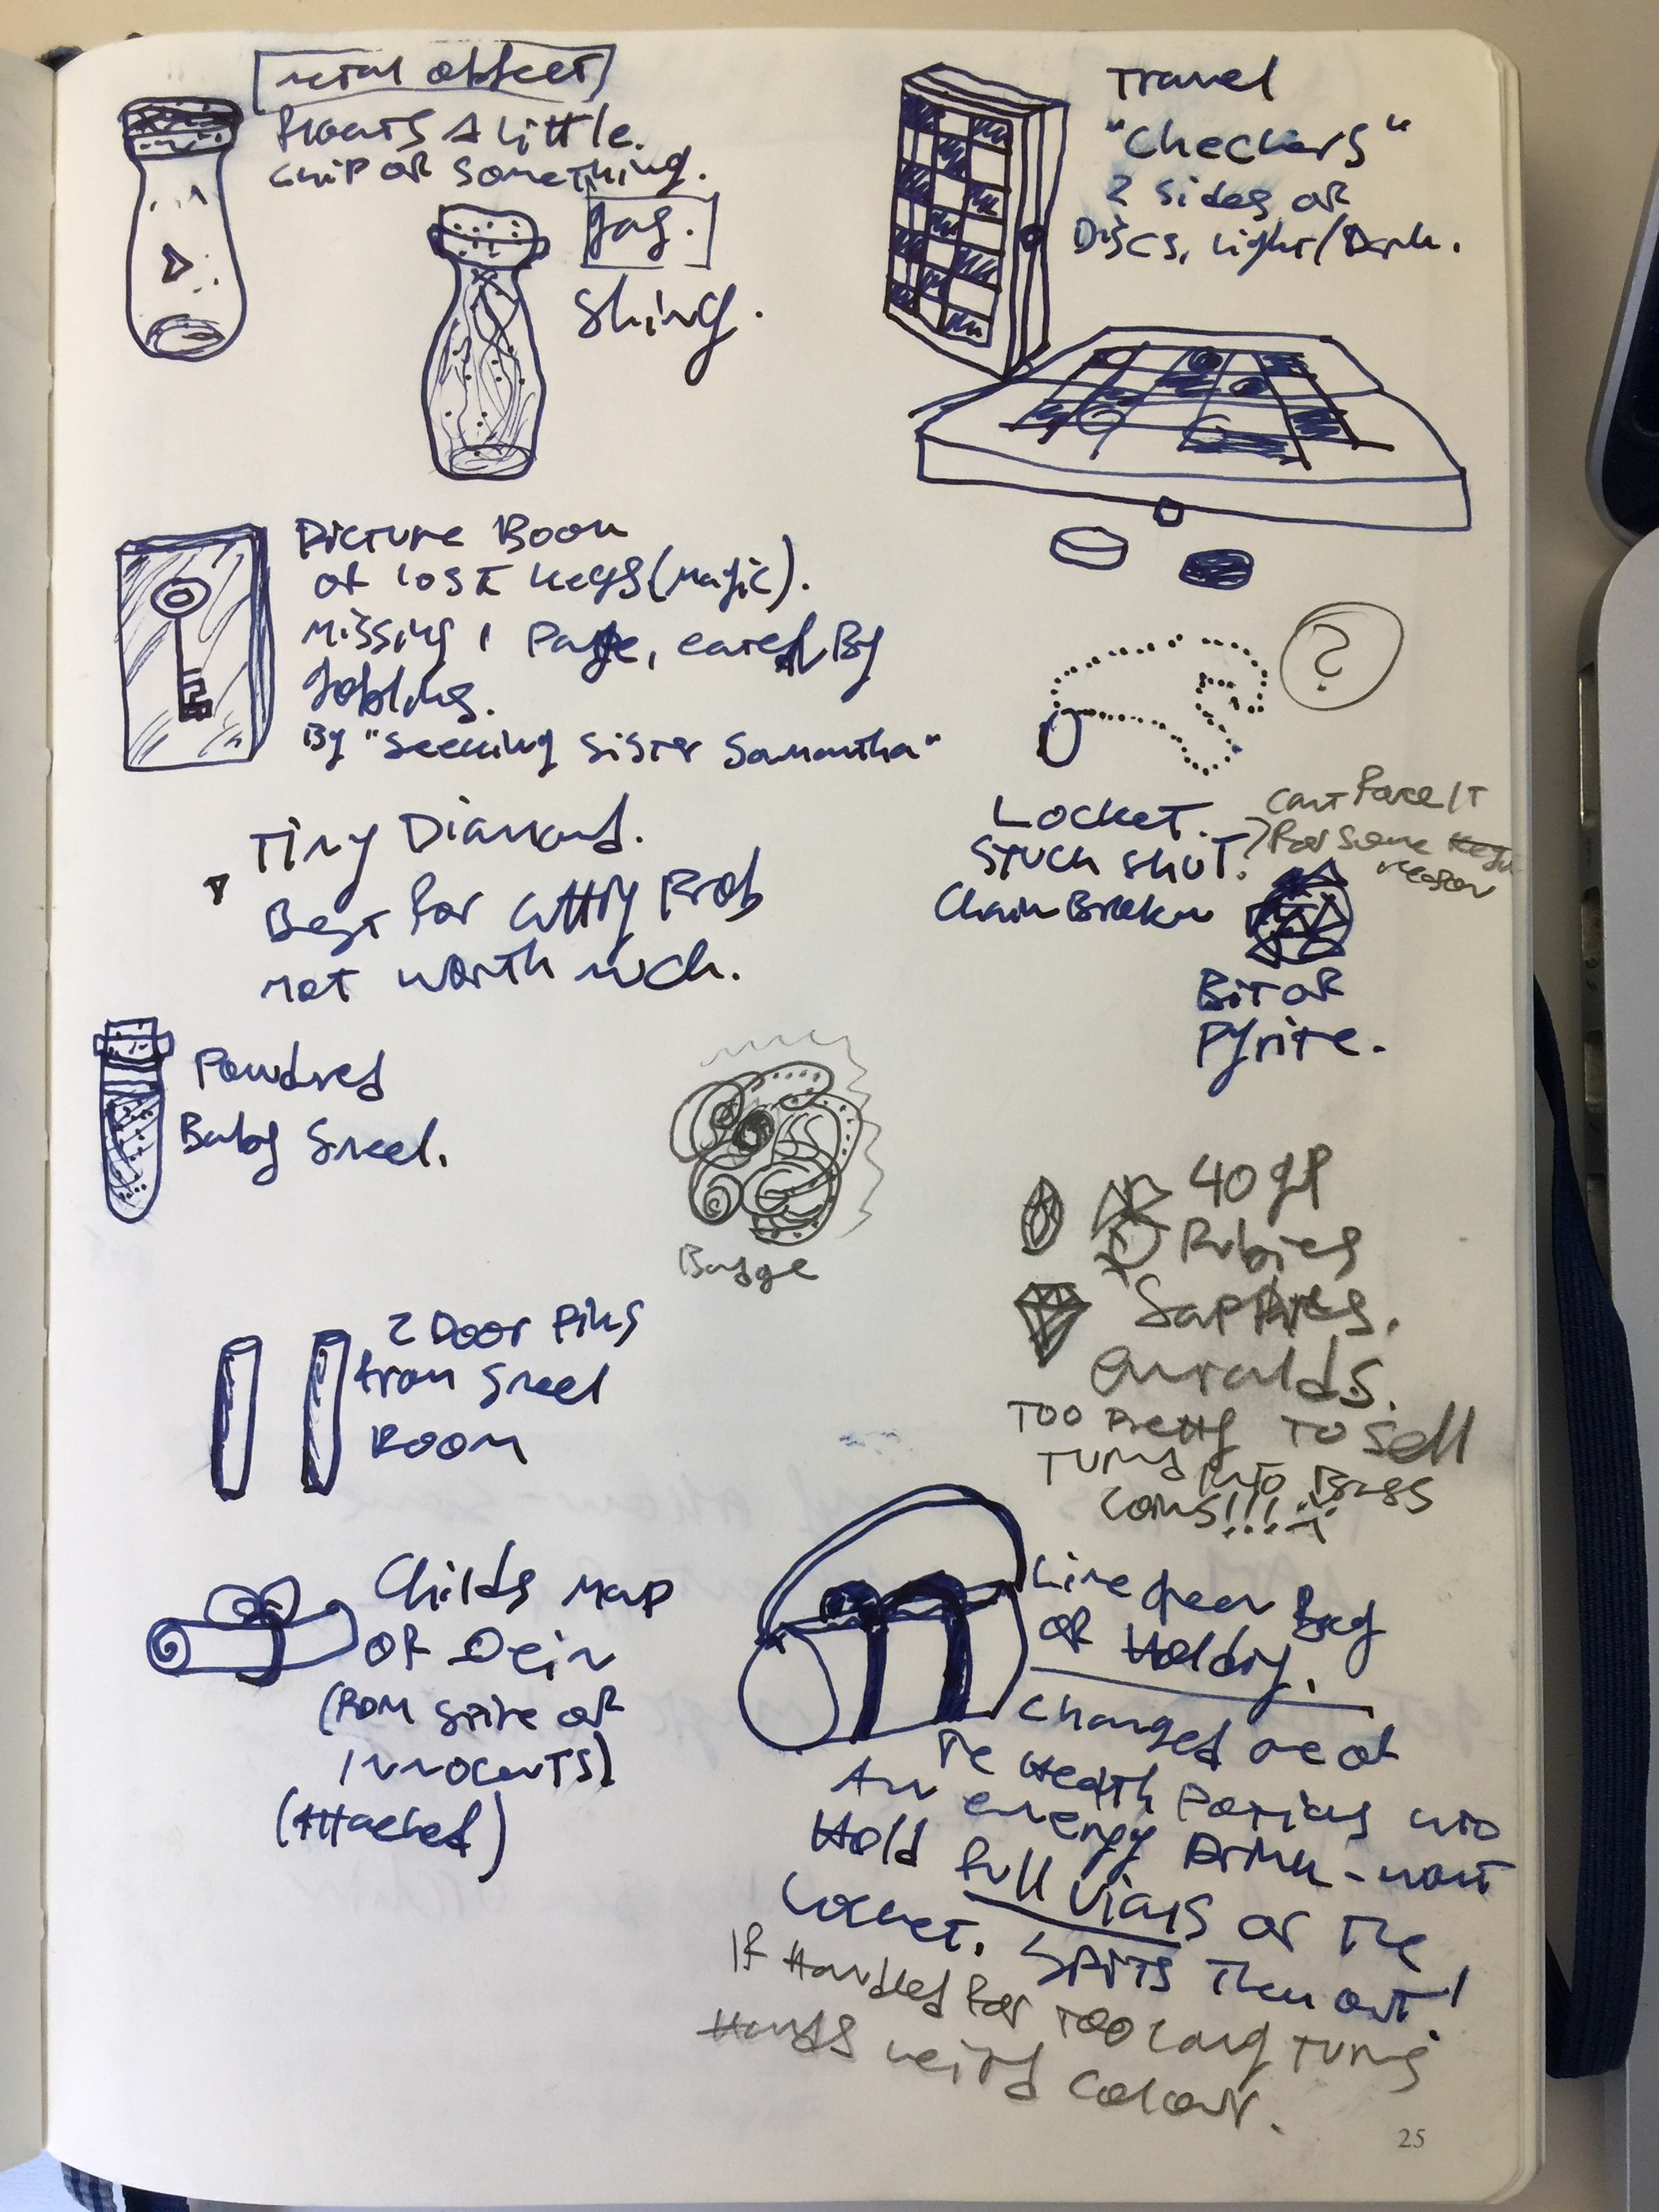 metal object
floats a little.
chip of something.
gas.
Shiny.
Travel
"Checkers"
2 sides of
Discs, light/Dark.
Picture Book
of lost keys (magic).
Missing 1 Page, eaten By
Goblins.
By "Seeking Sister Samantha"
?
Tiny Diamond.
Best for cutting Prob
not worth much.
Locket.
Stuck shut.
Chain Broken
Cant force it
for some
reason
Bit of
Pyrite.
Powdred
Baby Sneel.
Badge
40 gp
Rubies
Sapphires.
Emralds.
Too Pretty to sell
Turns into Brass
coins!!!
2 Door Pins
from Sneel
Room
Childs Map
of Dein
(from Spire of
Innocents)
(Attached)
Lime green Bag
of Holding.
Changed one of
the Health Potions into
An energy Drink - won't
Hold full vials or the
Locket. Spits them out!
If Handled for too long turns
Hands weird colour.
25